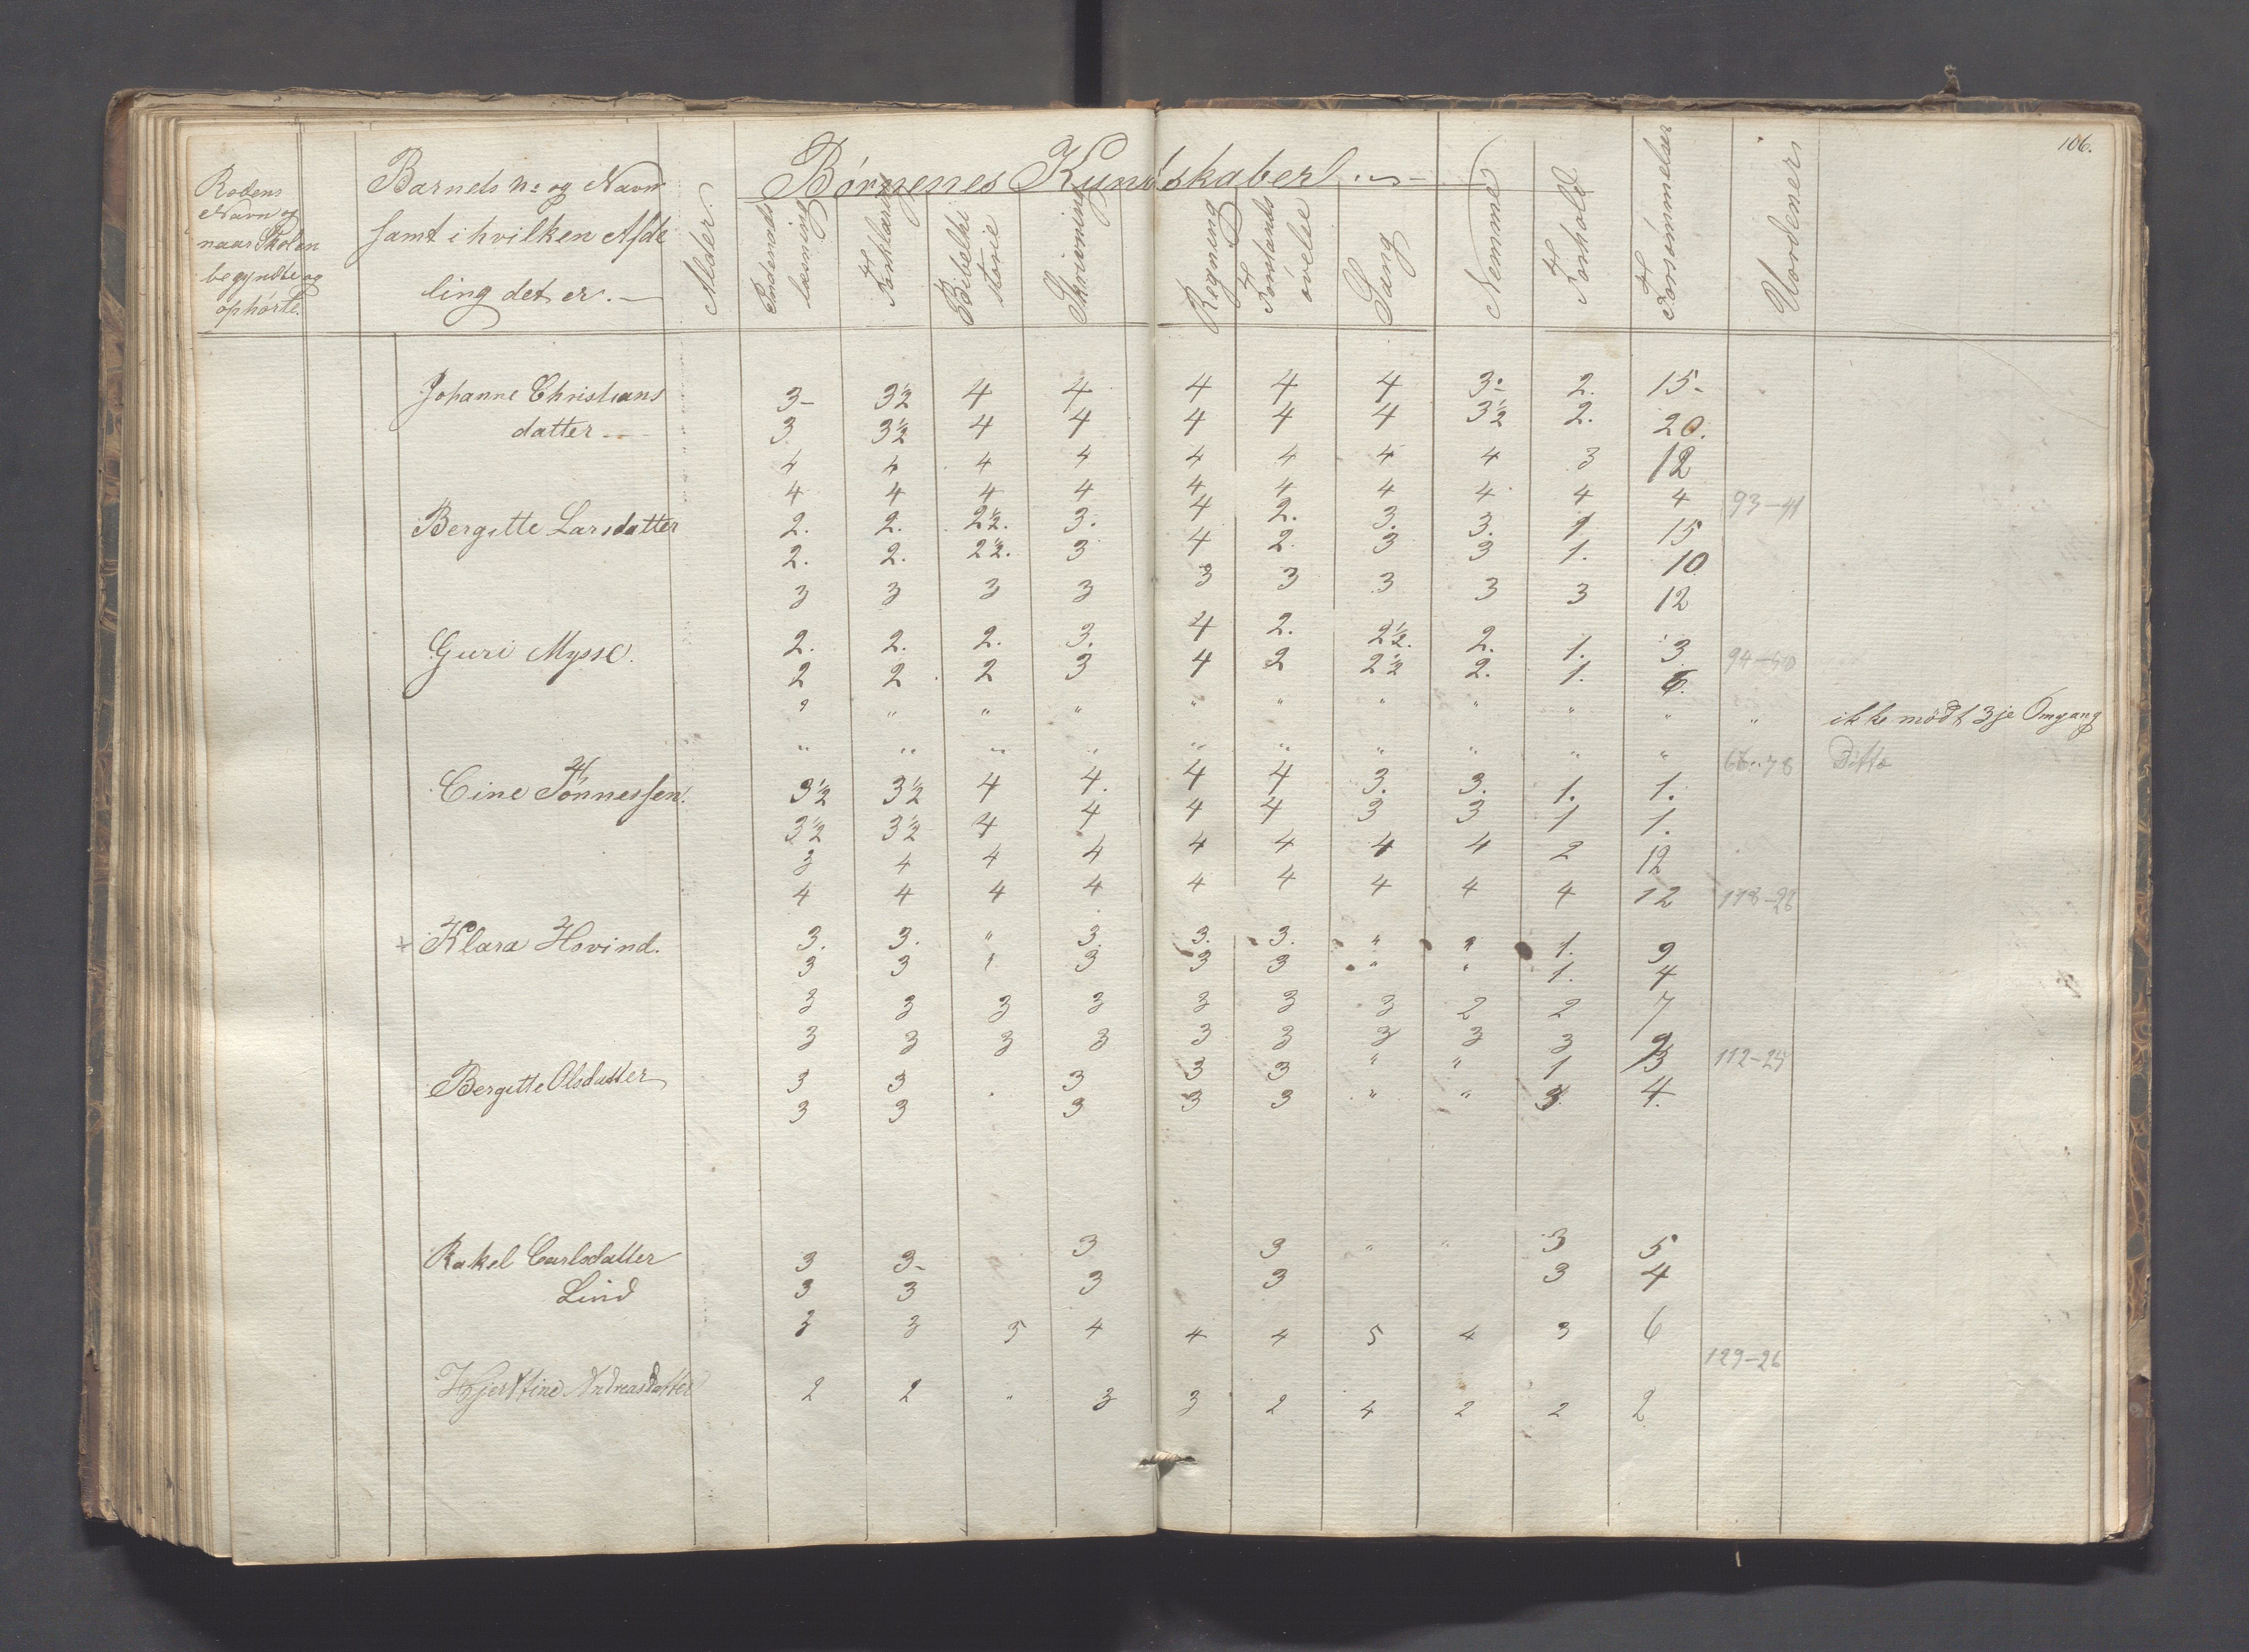 106.
Rodens Navn og naar Skolen begyndte og ophørte.
Barnets No og Navn samt i hvilken Afdeling det er.
Alder.
Børnenes Kundskaber
Indenadslæsning
Forklaring
Bibelhistorie
Skrivning
Regning
Forstandsøvelse
Sang
Nemme
Forhold
Forsømmelser
Uordener
Johanne Christians 3 3½ 4 4 4 4 4 3 2. 15
datter 3 3½ 4 4 4 4 4 3½ 2. 20.
4 4 4 4 4 4 4 4 3 12
4 4 4 4 4 4 4 4 4 4 93-41
Bergitte Larsdatter 2. 2. 2½. 3. 4 2. 3. 3. 1 15
2. 2. 2½. 3 4 2. 3 3 1. 10
3 3 3 3 3 3 3 3 3 12
Guri Mysse. 2. 2. 2. 3. 4 2. 2½. 2. 1. 3 94-40
2 2 2 3 4 2 2½ 2. 1. 6.
" " " " " " " " " " " ikke mødt 3je Omgang
" " " " " " " " " " 66-78 Ditto
Cine Tønnessen. 3½ 3½ 4 4. 4 4 3. 3. 1. 1.
3½ 3½ 4 4 4 4 3 3 1 1.
3 4 4 4 4 4 4 4 2 12
4 4 4 4 4 4 4 4 4 12 118-26
Klara Hovind. 3. 3. " 3. 3. 3. " " 1. 9
3 3 " 3 3 3 " " 1. 4
3 3 3 3 3 3 3 2 2 7
3 3 3 3 3 3 3 3 3 9
Bergitte Olsdatter 3 3 3 3 3 " " 1 13 112-24
3 3 . 3 3 3 " " 3. 4.
Rakel Carlsdatter 3 3 3 3 " " 3 5
Lind 3 3 3 3 3 4
3 3 5 4 4 4 5 4 3 6
129-26
Kjerstine Andreasdatter 2 2 " 3 3 2 4 2 2 2